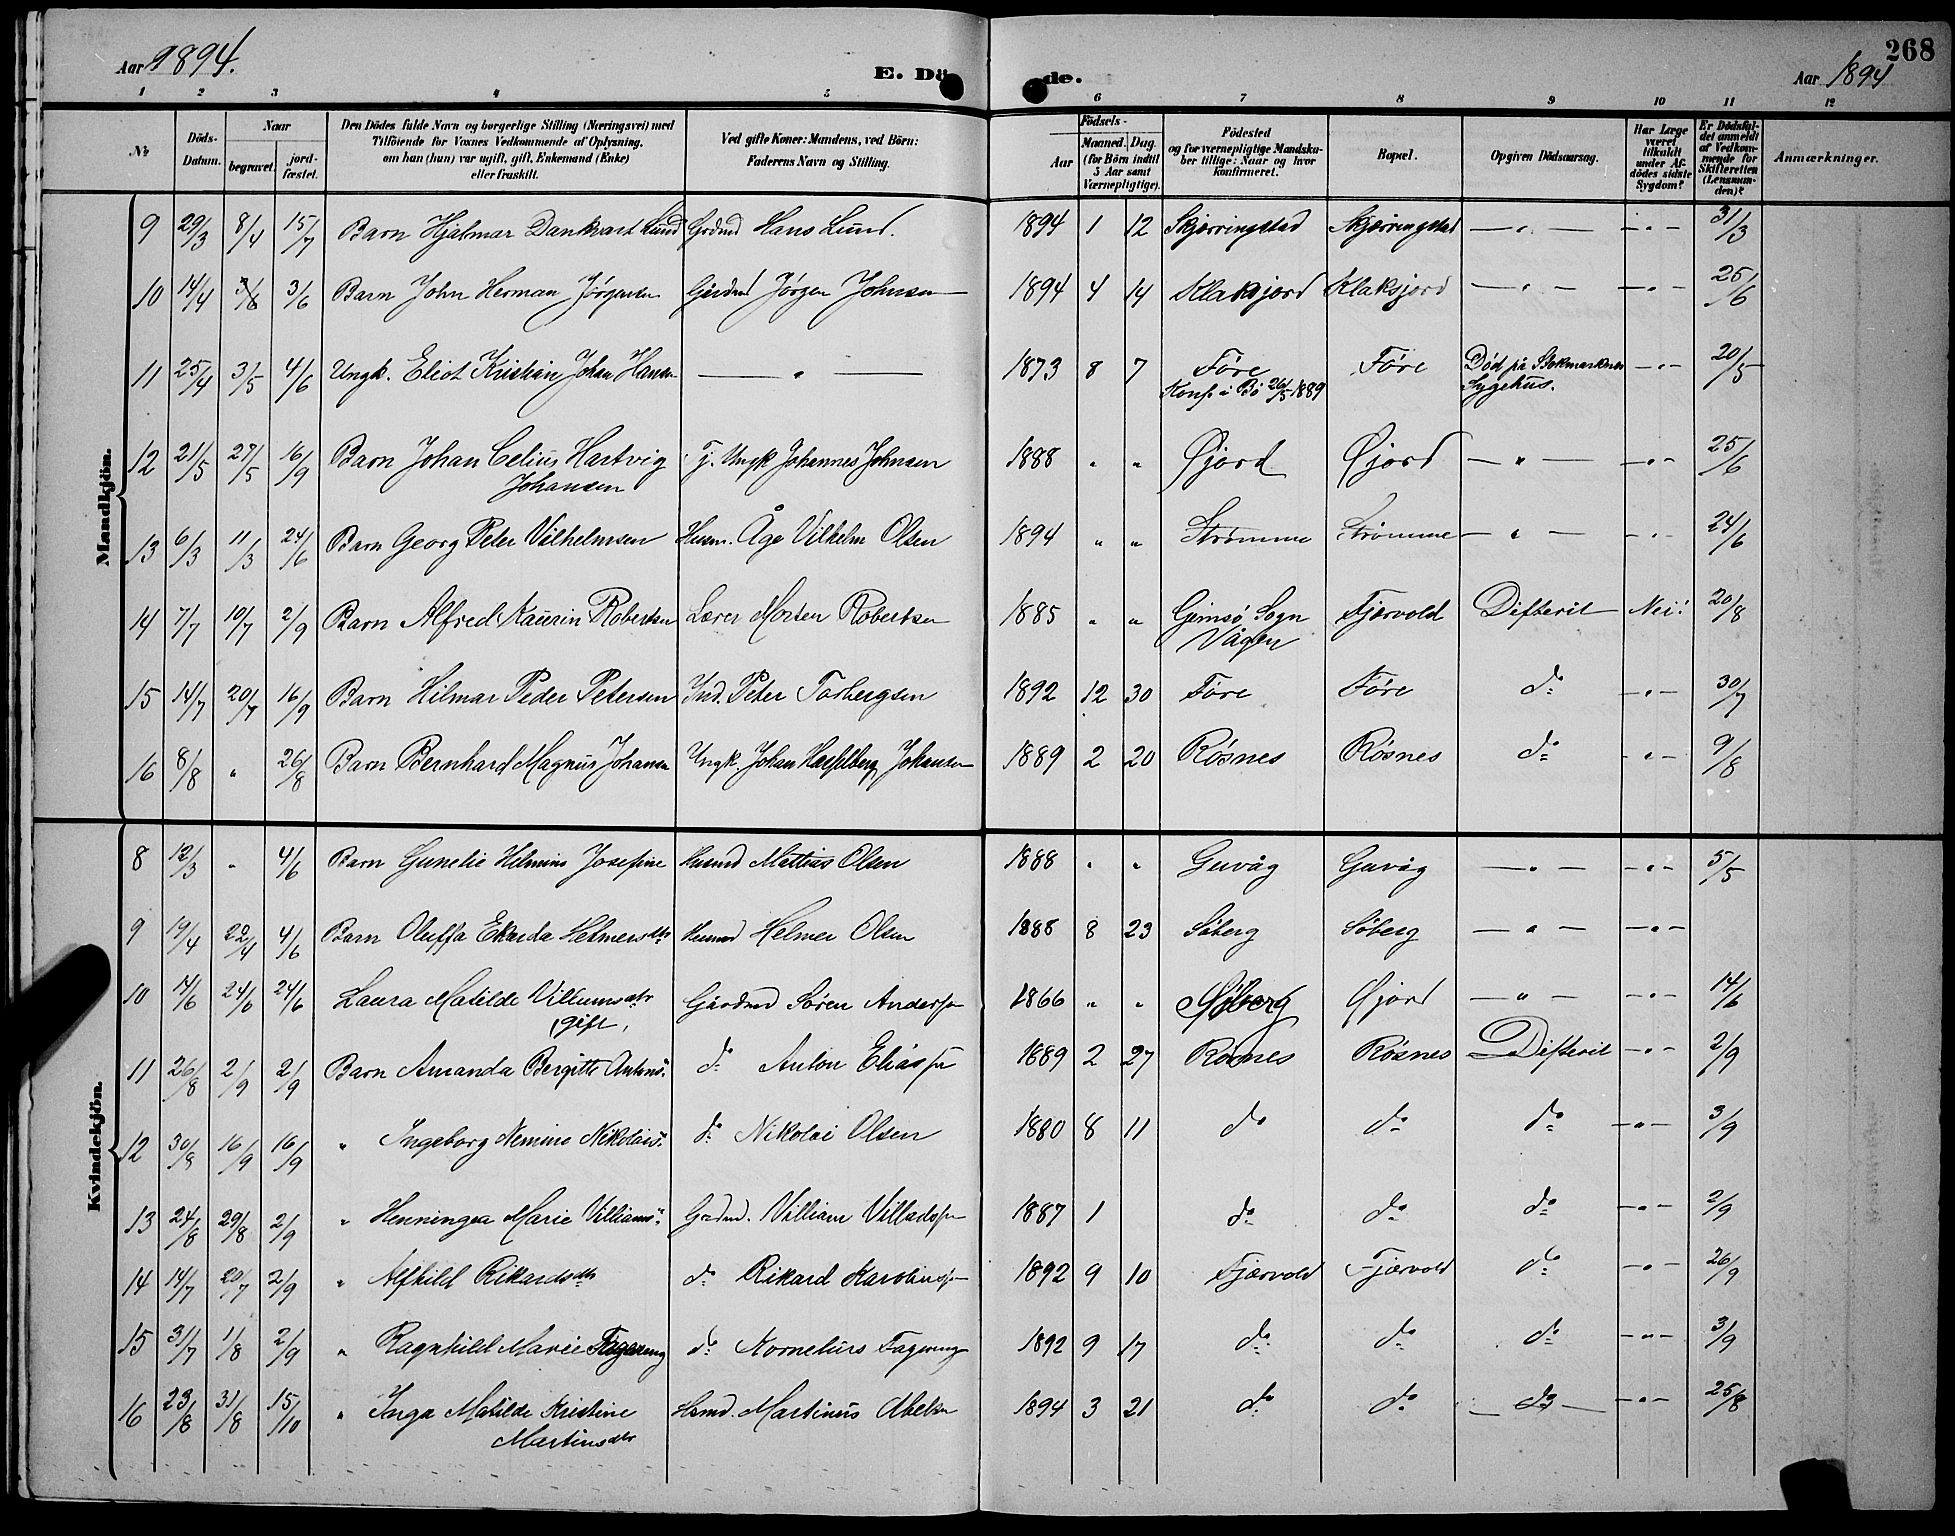 268
Aar 1894.
E. Döde.
Aar 1894
1 2 3 4 5 6 7 8 9 10 11 12
No. Döds-Datum. Naar begravet. jordfæstet. Den Dödes fulde Navn og borgerlige Stilling (Næringsvei) med Tilföiende for Voxnes Vedkommende af Oplysning, om han (hun) var ugift, gift, Enkemand (Enke) eller fraskilt. Ved gifte Koner: Mandens, ved Börn: Faderens Navn og Stilling. Födsels- Aar Maaned. Dag. (for Börn indtil 5 Aar samt Værnepligtige). Födested og for værnepligtige Mandskaber tillige: Naar og hvor konfirmeret. Bopæl. Opgiven Dödsaarsag. Har Læge været tilkaldt under Afdödes sidste Sygdom? Er Dödsfaldet anmeldt af Vedkommende for Skifteretten (Lensmanden)? Anmærkninger.
Mandkjön.
9 29/3 8/4 15/7 Barn Hjalmar Dankvart Lund Grdmd Hans Lund. 1894 1 12 Skjørringstad Skjørringstad — " — - " - 31/3
10 14/4 3/6 3/6 Barn John Herman Jörgensen Gårdmd Jörgen Johnsen 1894 4 14 Klaksjord Klaksjord — " — - " - 25/6
11 25/4 3/5 4/6 Ungk. Eliot Kristian Johan Hansen — " — 1873 8 7 Före Före Død på Stokmarknes - " - 20/5
Konf. i Bö 26/5 1889 Sygehus.
12 21/5 27/5 16/9 Barn Johan Celius Hartvig Tj. Ungk Johannes Johnsen 1888 " " Øjord Øjord — " — - " - 25/6
Johansen
13 6/3 11/3 24/6 Barn Georg Peter Vilhelmsen Husm. Åge Vilhelm Olsen 1894 " " Strømme Strømme — " — - " - 24/6
14 7/7 10/7 2/9 Barn Alfred Kaurin Robertsen Lærer Morten Robertsen 1885 " " Gimsö Sogn Fjærvold Difterit Nei! 20/8
Vågen
15 14/7 20/7 16/9 Barn Hilmar Peder Petersen Ind. Peter Torbergsen 1892 12 30 Före Före do - " - 30/7
16 8/8 " 26/8 Barn Bernhard Magnus Johansen Ungk. Johan Hasselberg Johansen 1889 2 20 Røsnes Røsnes do - " - 9/8
Kvindekjön.
8 12/3 " 4/6 Barn Gunelie Helmine Josefine Husmd Mathias Olsen 1888 " " Guvåg Guvåg — " — - " - 5/5
9 19/4 22/4 4/6 Barn Oluffa Ekarda Helmersdtr Husmd Helmer Olsen 1888 8 23 Söberg Söberg — " — - " -
10 14/6 24/6 24/6 Laura Matilde Villumsdtr Gårdmd Sören Anderss. 1866 " " Øjord — " — - " - 14/6
gift,
11 26/8 2/9 2/9 Barn Amanda Bergitte Antons. do Anton Eliass. 1889 2 27 Røsnes Røsnes Difterit - " - 2/9
12 30/8 16/9 16/9 " Ingeborg Nemine Nikolais. do Nikolai Olsen 1880 8 11 do do do - " - 3/9
13 24/8 29/8 2/9 " Henningea Marie Villiams. Grdmd. Villiam Villadss. 1887 1 do do do - " - 2/9
14 14/7 20/7 2/9 " Alfhild Rikardsdtr do Rikard Karoliuss. 1892 9 10 Fjærvold Fjærvold do - " - 26/9
15 31/7 1/8 2/9 " Ragnhild Marie Fagereng do Kornelius Fagereng 1892 9 17 do do do - " - 3/9
16 23/8 31/8 15/10 " Inga Matilde Kristine Husmd. Martinus Abelsen 1894 3 21 do do do - " - 25/8
Martinsdtr